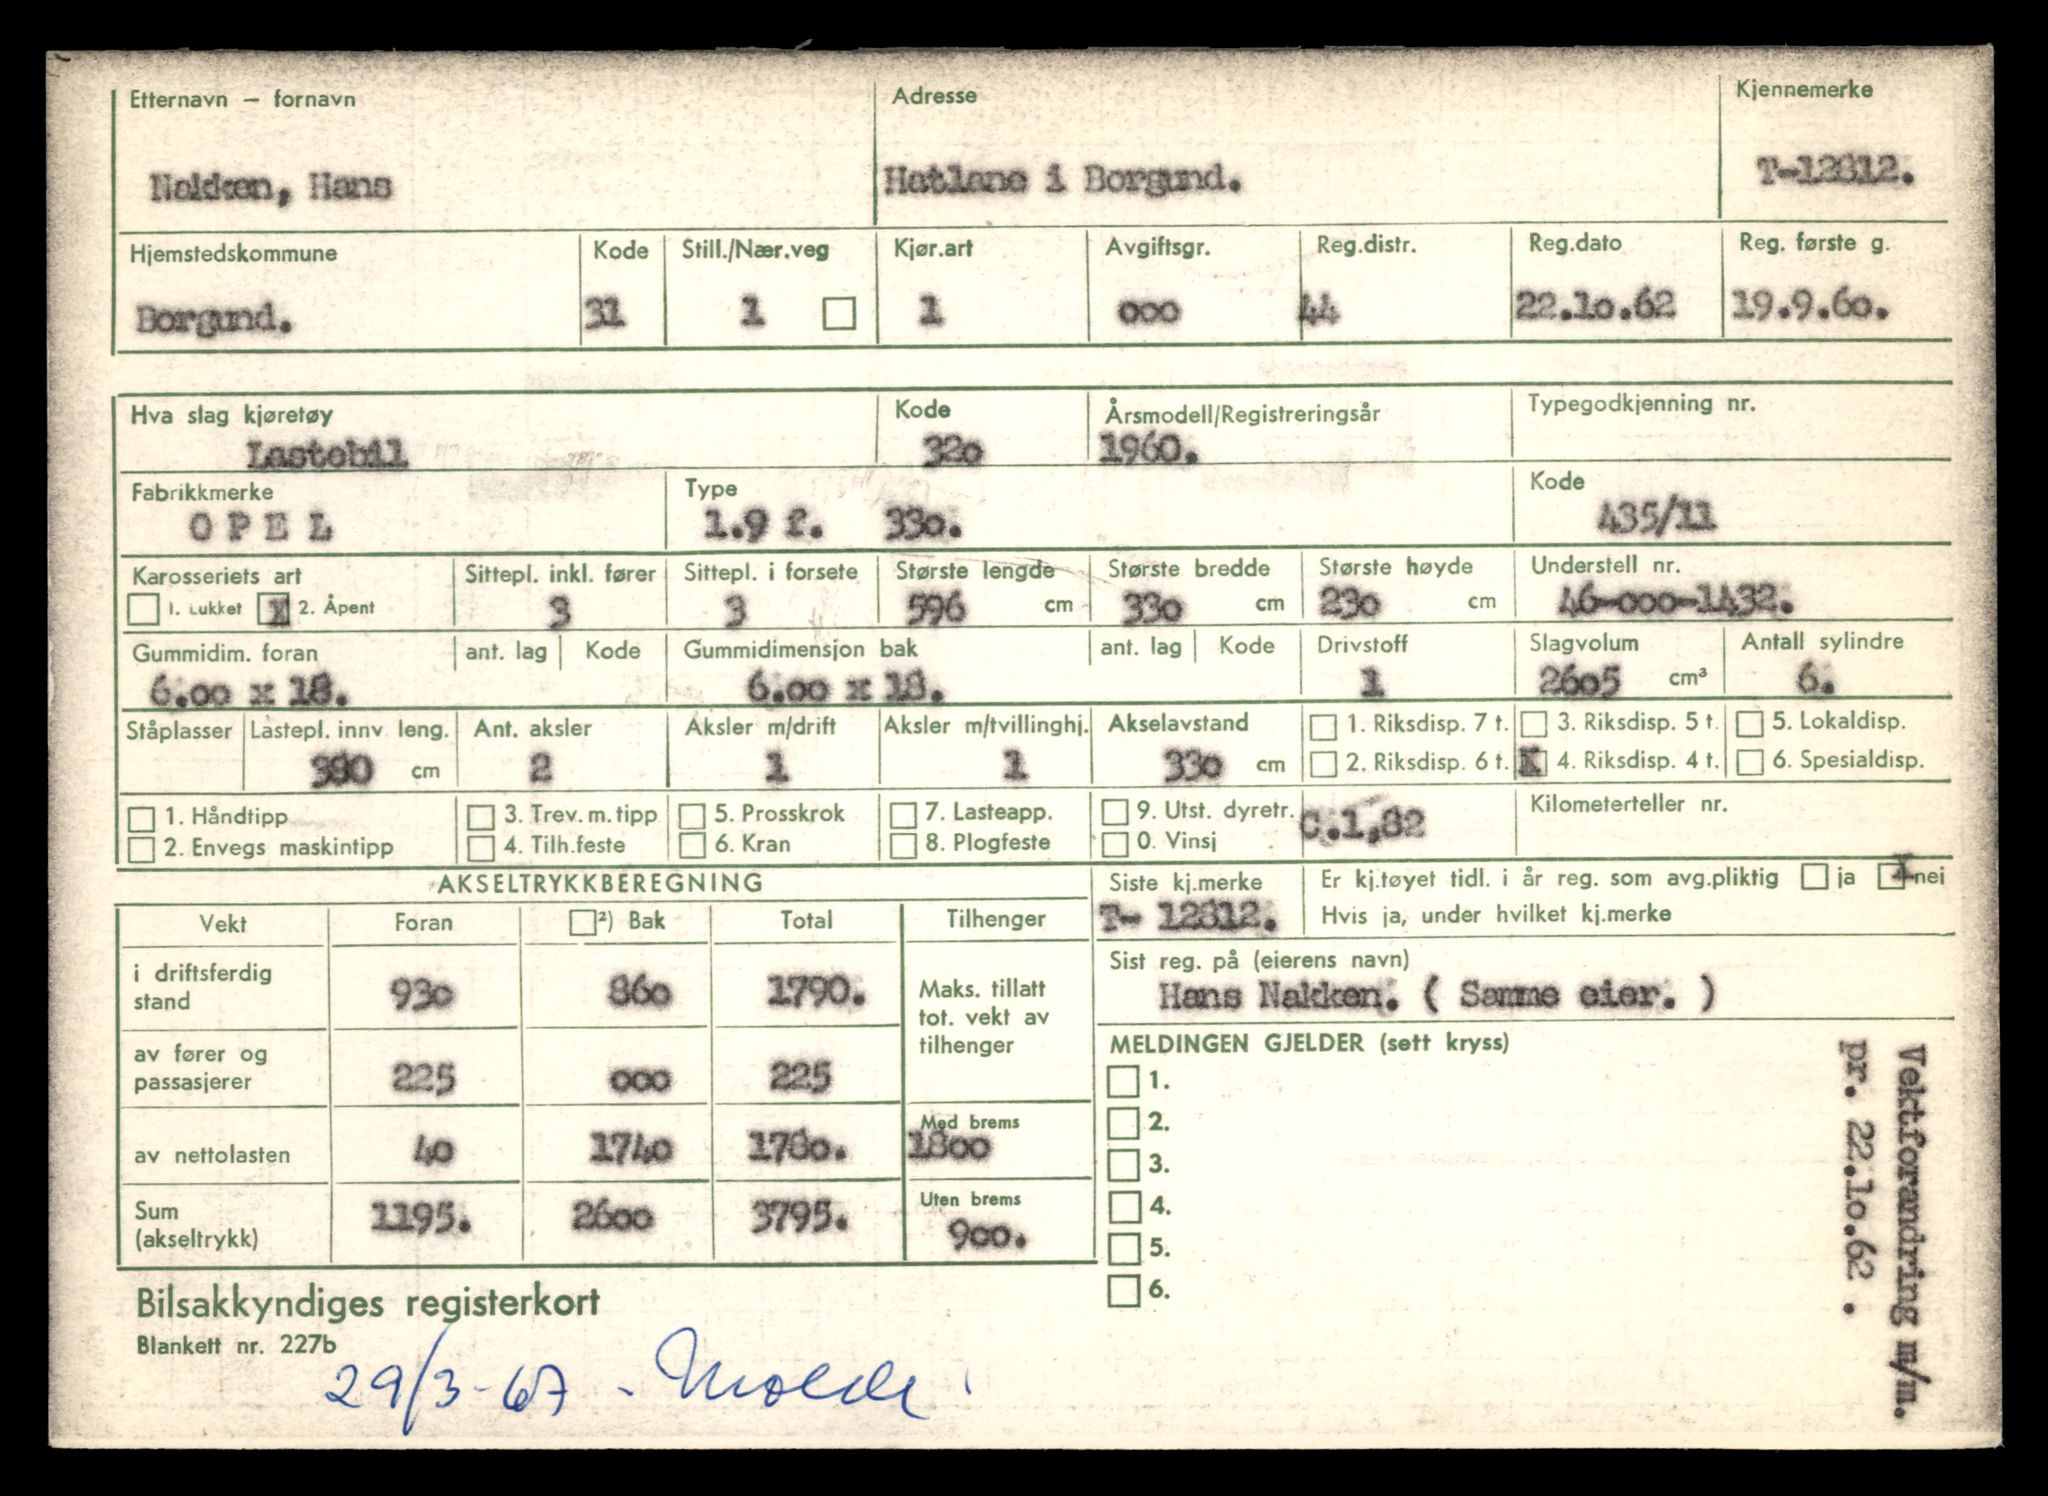 Etternavn – fornavn Adresse Kjennemerke
Nakken, Hans Hatlane i Borgund. T-12812.
Hjemstedskommune Kode Still./Nær.veg Kjør.art Avgiftsgr. Reg.distr. Reg.dato Reg. første g.
Borgund. 31 1 1 000 44 22.10.62 19.9.60.
Hva slag kjøretøy Kode Årsmodell/Registreringsår Typegodkjenning nr.
Lastebil 320 1960.
Fabrikkmerke Type Kode
OPEL 1.9 f. 330. 435/11
Karosseriets art Sittepl. inkl. fører Sittepl. i forsete Største lengde Største bredde Største høyde Understell nr.
1. Lukket X 2. Åpent 3 3 596 cm 330 cm 230 cm 46-000-1432.
Gummidim. foran ant. lag Kode Gummidimensjon bak ant. lag Kode Drivstoff Slagvolum Antall sylindre
6.00 x 18. 6.00 x 18. 1 2605 cm³ 6.
Ståplasser Lastepl. innv. leng. Ant. aksler Aksler m/drift Aksler m/tvillinghj. Akselavstand 1. Riksdisp. 7 t. 3. Riksdisp. 5 t. 5. Lokaldisp.
cm 2 1 1 330 cm 2. Riksdisp. 6 t. X 4. Riksdisp. 4 t. 6. Spesialdisp.
1. Håndtipp 3. Trev. m. tipp 5. Prosskrok 7. Lasteapp. 9. Utst. dyretr. C.1,82 Kilometerteller nr.
2. Envegs maskintipp 4. Tilh.feste 6. Kran 8. Plogfeste 0. Vinsj
AKSELTRYKKBEREGNING Siste kj.merke Er kj.tøyet tidl. i år reg. som avg.pliktig ja X nei
T- 12812. Hvis ja, under hvilket kj.merke
Vekt Foran ²) Bak Total Tilhenger
Sist reg. på (eierens navn)
Hans Nakken. ( Samme eier. )
i driftsferdig stand 930 860 1790. Maks. tillatt tot. vekt av tilhenger
av fører og passasjerer 225 000 225
av nettolasten 40 1740 1780. Med brems 1800
Sum (akseltrykk) 1195. 2600 3795. Uten brems 900.
MELDINGEN GJELDER (sett kryss)
1.
2.
3.
4.
5.
6.
Vektforandring m/m.
pr. 22.10.62 .
Bilsakkyndiges registerkort
Blankett nr. 227b
29/3-67 - Molde